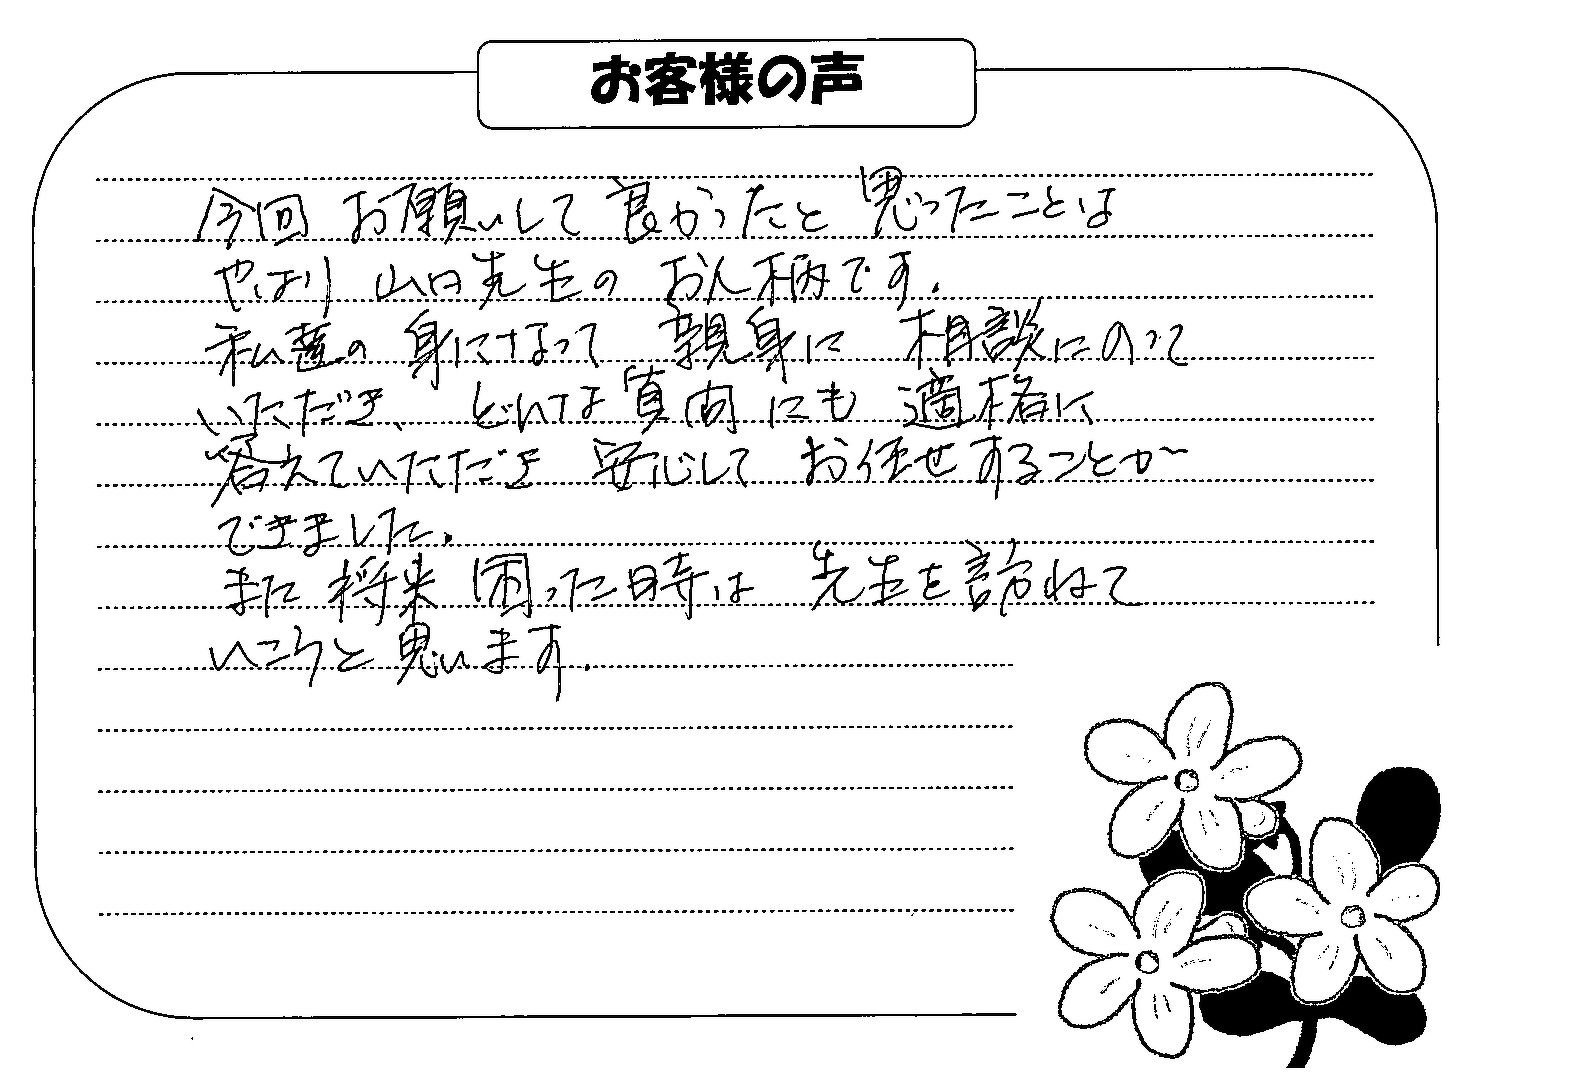 お客様の声
今回 お願いして 良かったと 思ったことは
やはり 山口先生の お人柄です.
私達の 身になって 親身に 相談にのって
いただき、どんな質問にも 適格に
答えていただき 安心して お任せすることが
できました.
また 将来 困った時は 先生を訪ねて
いこうと思います.